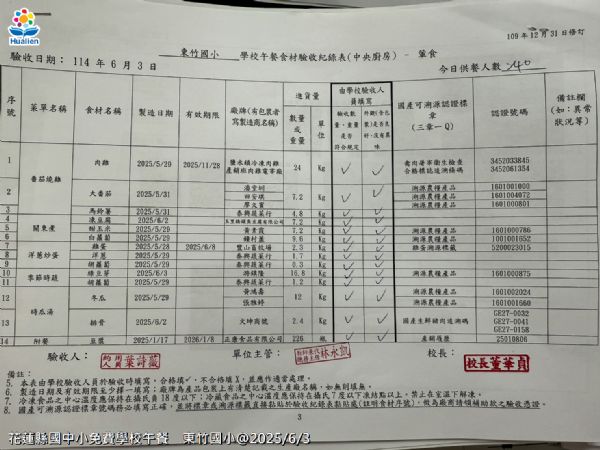 Hualien
109年12月31日修訂
東竹國小 學校午餐食材驗收紀錄表(中央廚房) - 葷食
驗收日期： 114 年 6 月 3 日
今日供餐人數
序號 菜單名稱 食材名稱 製造日期 有效期限 廠牌(有包裝者寫製造商名稱) 進貨量 數量或重量 單位 由學校驗收人員填寫 驗收數量、重量是否符合規定 國產可溯源認證標章(三章一Q) 認證號碼 備註欄(如:異常狀況等)
1 番茄燒雞 肉雞 2025/5/29 2025/11/28 24 Kg 3452033845
3452061354
2 大番茄 2025/5/31 7.2 Kg 溯源農糧產品 1601001000
田安琪 溯源農糧產品
溯源農糧產品 1601000801
3 關東煮 馬鈴薯 2025/5/31 泰興蔬菜行 4.8 Kg
4 凍豆腐 2025/6/2 7.2 Kg
5 甜玉米 2025/5/29 7.2 Kg 溯源農糧產品 1601000786
6 白蘿蔔 2025/5/29 9.6 Kg 溯源農糧產品 1001001652
7 洋蔥炒蛋 雞蛋 2025/5/28 2025/6/8 豐山畜牧場 2.3 Kg 雞蛋溯源標籤 5200023015
8 洋蔥 2025/5/29 泰興蔬菜行 1.7 Kg
9 胡蘿蔔 2025/5/29 泰興蔬菜行 0.3 Kg
10 季節時蔬 綠豆芽 2025/6/3 16.8 Kg 溯源農糧產品 1601000875
11 胡蘿蔔 2025/5/29 泰興蔬菜行 1.2 Kg
12 時瓜湯 冬瓜 2025/5/29 12 Kg 溯源農糧產品 1601002024
張雅婷 溯源農糧產品 1601001660
13 排骨 2025/6/2 大坤商號 2.4 Kg 國產生鮮豬肉追溯碼 GE27-0032
GE27-0041
GE27-0158
14 附餐 豆漿 2025/1/17 2026/1/8 正康食品有限公司 226 瓶 產銷履歷 25010806
驗收人： 單位主管： 校長： 校長董華貞
備註：
5. 本表由學校驗收人員於驗收時填寫，合格填✓，不合格填X，並應作適當處理。
6. 製造日期及有效期限至少擇一填寫；廠牌為產品包裝上有清楚記載之生產廠名稱，如無則填無。
7. 冷凍食品之中心溫度應保持在攝氏負 18 度以下；冷藏食品之中心溫度應保持在攝氏7度以下凍結點以上，禁止在室溫下解凍。
8. 國產可溯源認證標章號碼務必填寫正確，並將標章或溯源標籤直接黏貼於驗收紀錄表黏貼處(註明食材序號)，做為廠商請領補助款之驗收憑證。
3
花蓮縣國中小免費學校午餐 東竹國小@2025/6/3